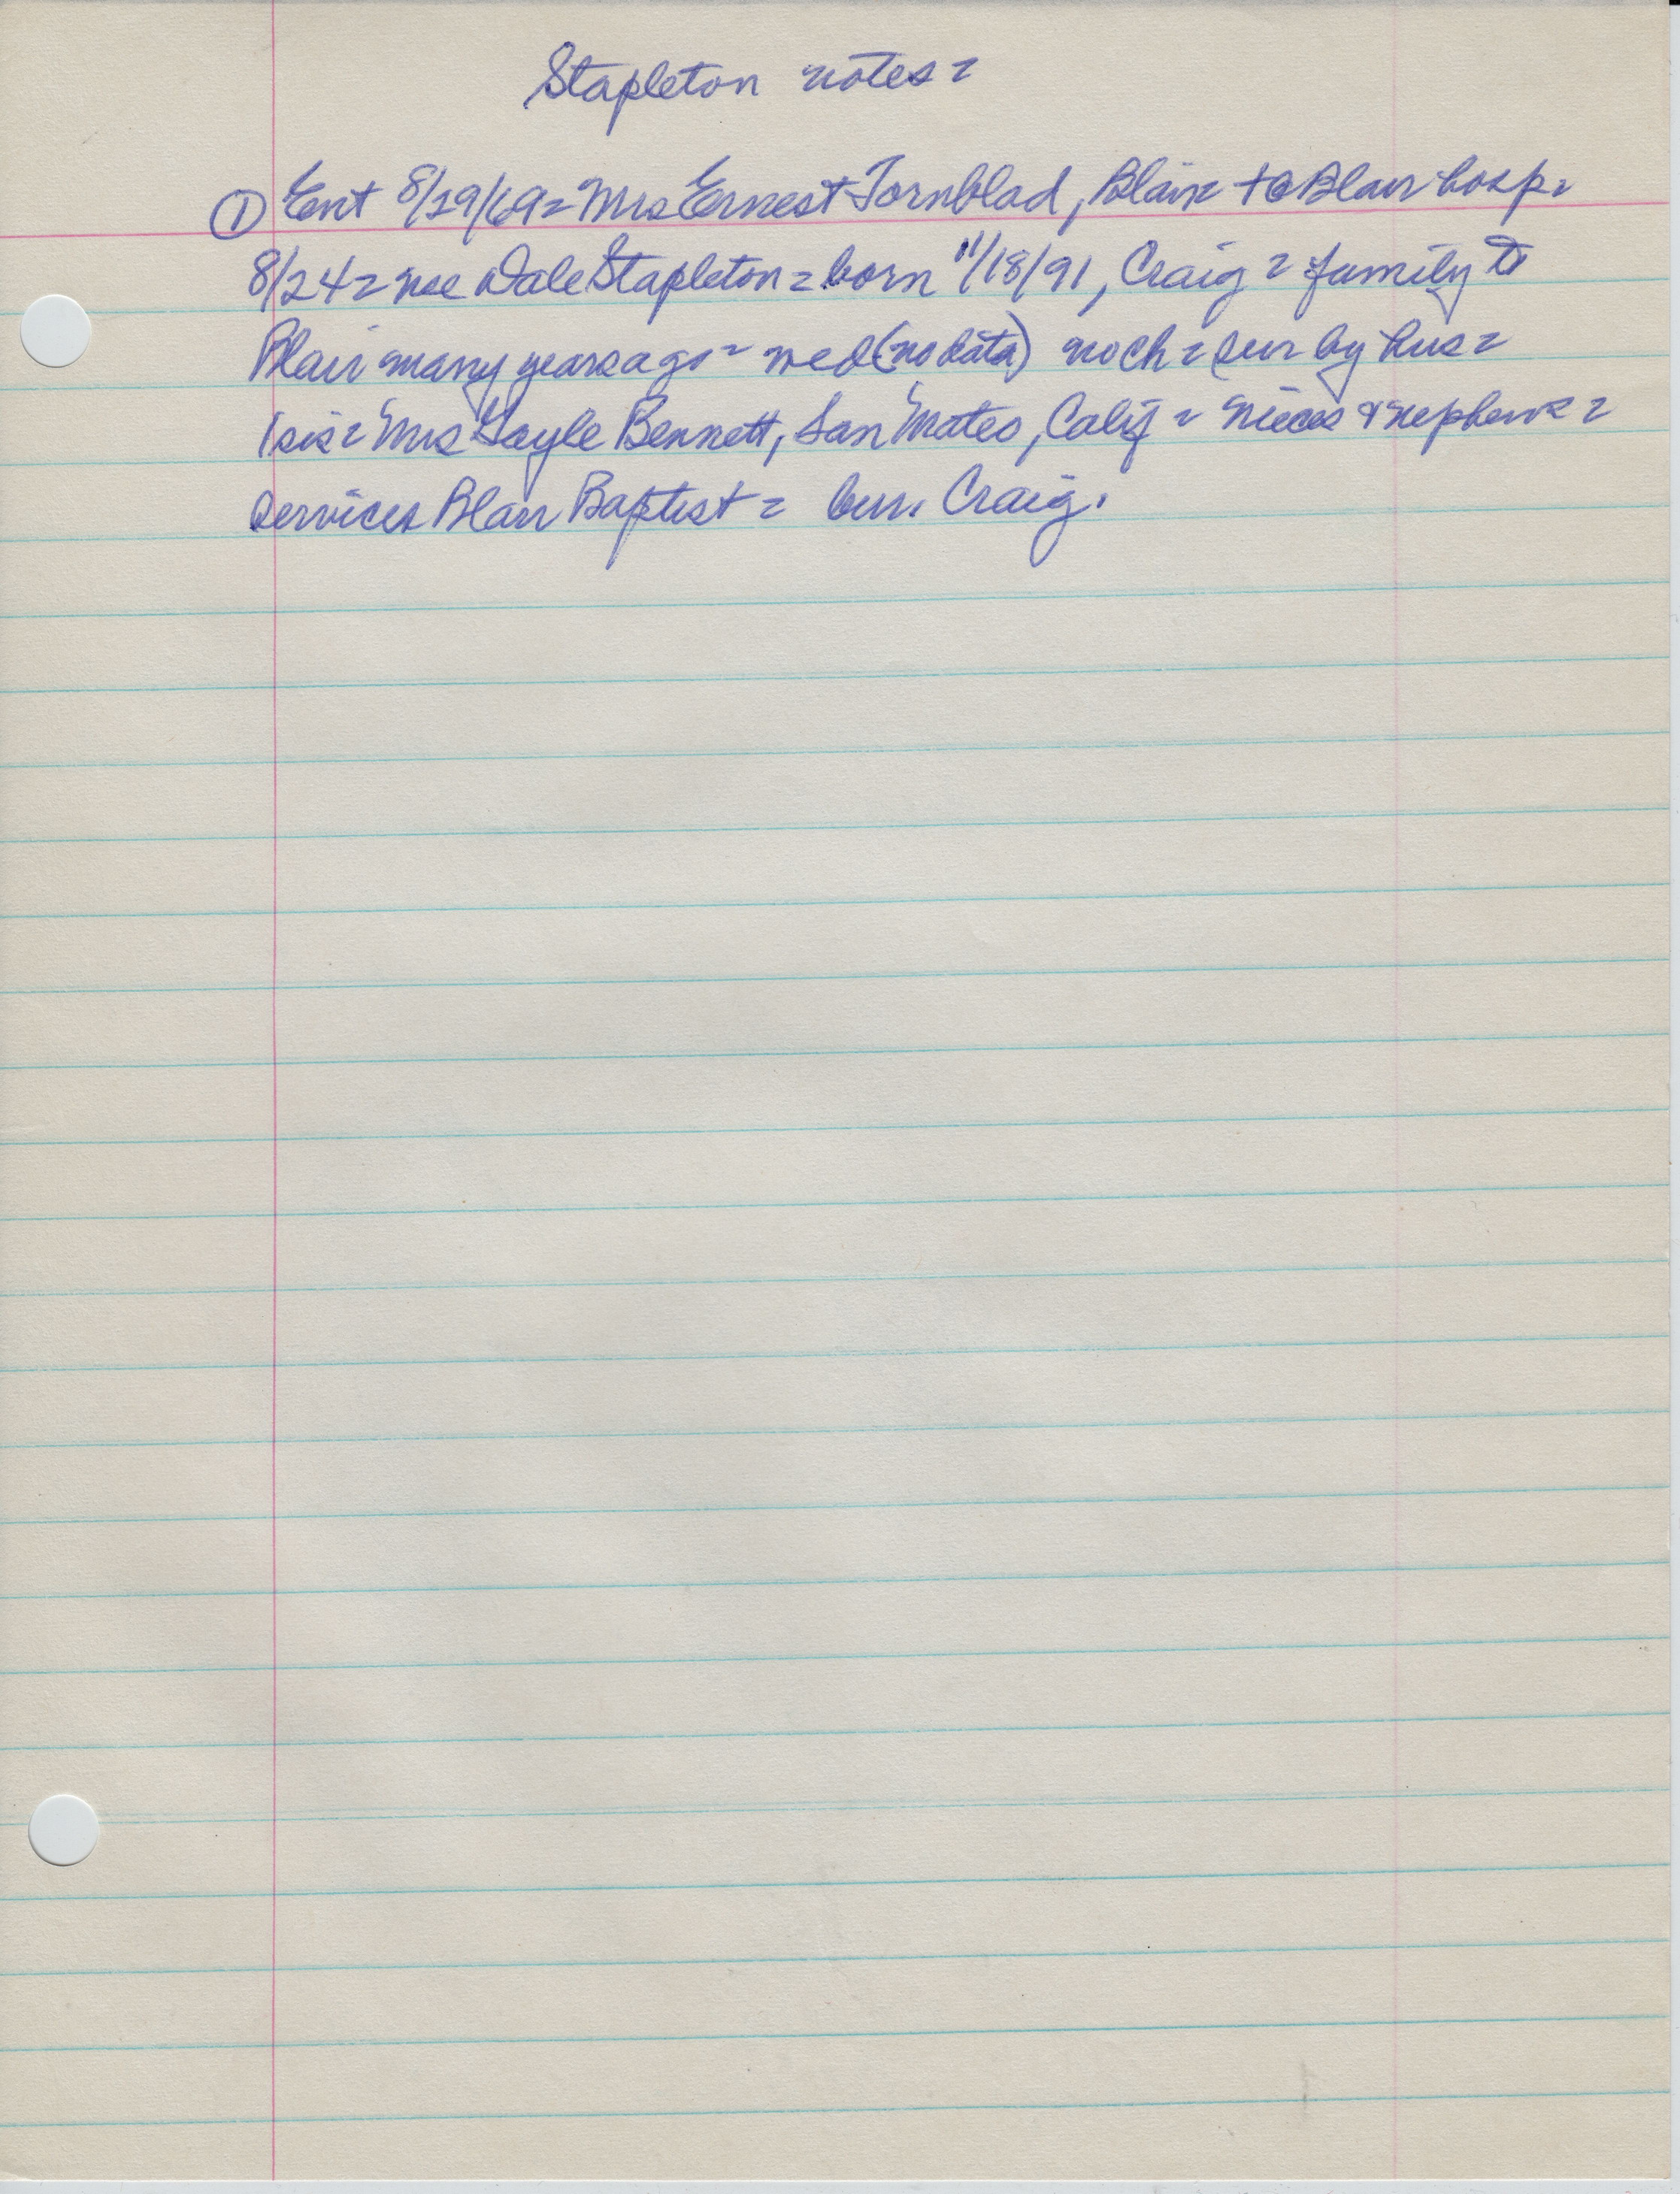 Stapleton notes =
① Ent 8/29/69 = Mrs Ernest Tornblad, Blair = to Blair hosp =
8/24 = nee Dale Stapleton = born 11/18/91, Craig = family to
Blair many years ago = wed (no data) no ch = sur by hus =
1 sis = Mrs Gayle Bennett, San Mateo, Calif = nieces & nephews =
services Blair Baptist = bur. Craig.